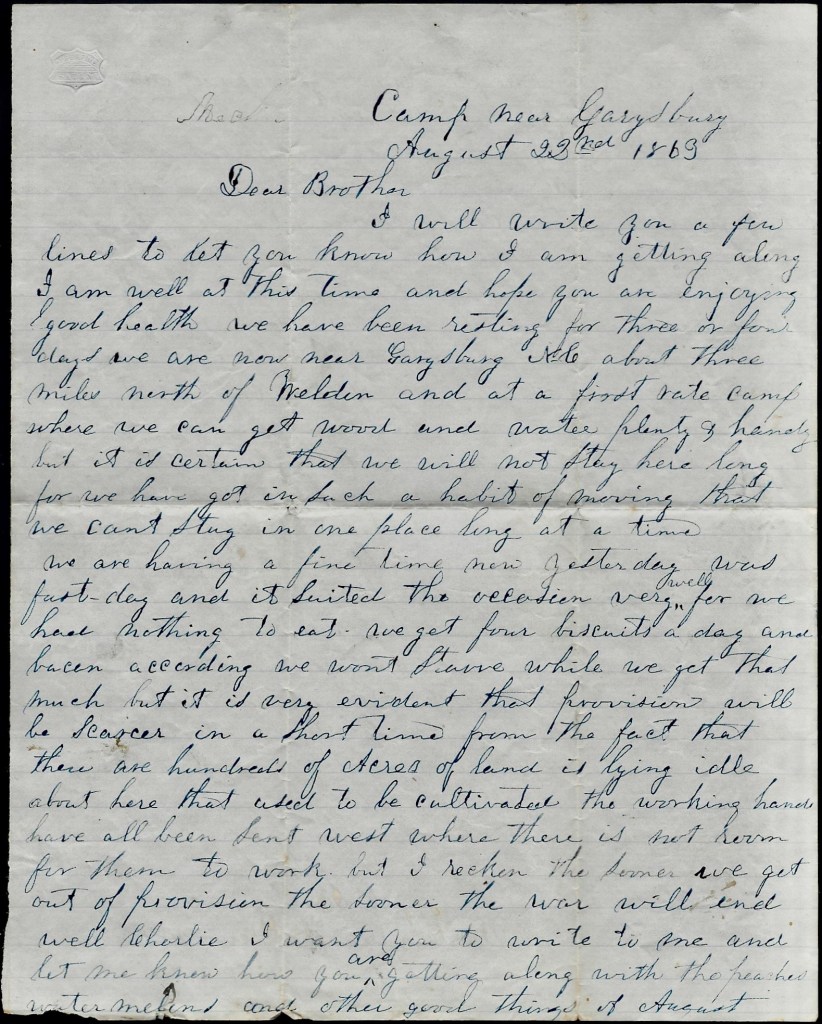 Camp near Garysburg
August 22nd 1863
Dear Brother
I will write you a few
lines to let you know how I am getting along
I am well at this time and hope you are enjoying
good health we have been resting for three or four
days we are now near Garysburg N.C about three
miles north of Weldon and at a first rate camp
where we can get wood and water plenty & handy
but it is certain that we will not stay here long
for we have got in such a habit of moving that
we cant stay in one place long at a time
we are having a fine time now yesterday was
fast-day and it suited the occasion very well for we
had nothing to eat. we get four biscuits a day and
bacon according we wont starve while we get that
much but it is very evident that provision will
be scarcer in a short time from the fact that
there are hundreds of acres of land is lying idle
about here that used to be cultivated the working hands
have all been sent west where there is not room
for them to work. but I recken the sooner we get
out of provision the sooner the war will end
well Charlie I want you to write to me and
let me know how you are getting along with the peaches
water melons and other good things of August